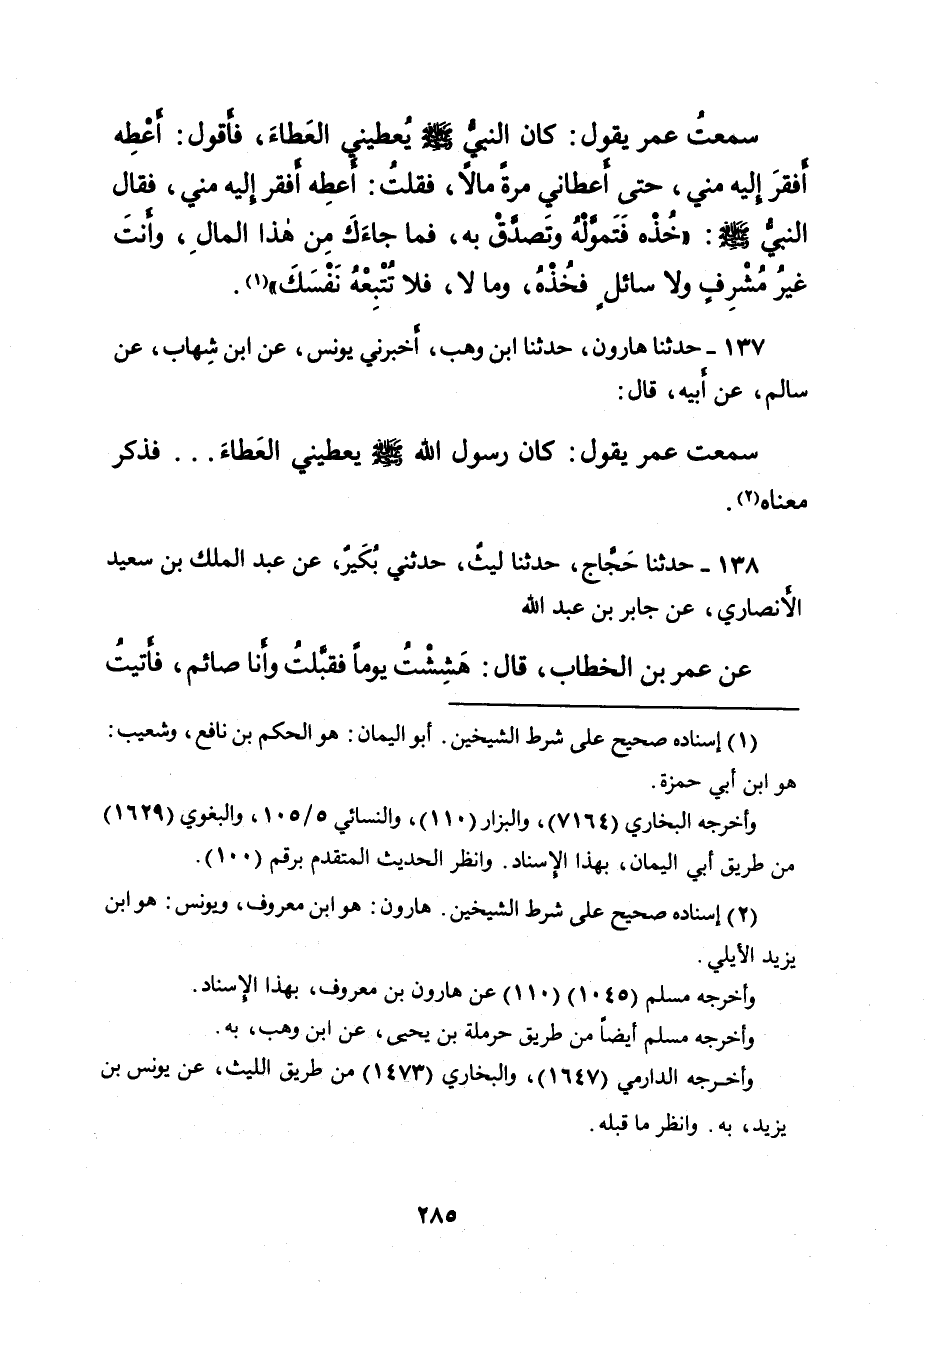 سمعتُ عمر يقول: كان النبيُّ ﷺ يُعطيني العَطاءَ، فأَقول: أَعْطِه
أَفقرَ إِليه مني، حتى أَعطاني مرةً مالاً، فقلتُ: أَعطِه أَفقر إِليه مني، فقال
النبيُّ ﷺ: «خُذْه فَتَموَّلْهُ وتَصدَّقْ به، فما جاءَكَ مِن هٰذا المالِ، وأَنتَ
غيرُ مُشْرِفٍ ولا سائلٍ فخُذْهُ، وما لا، فلا تُتْبِعْهُ نَفْسَكَ»(١).
١٣٧ ـ حدثنا هارون، حدثنا ابن وهب، أَخبرني يونس، عن ابن شِهاب، عن
سالم، عن أَبيه، قال:
سمعت عمر يقول: كان رسول الله ﷺ يعطيني العَطاءَ... فذكر
معناه(٢).
١٣٨ ـ حدثنا حَجَّاج، حدثنا ليثٌ، حدثني بُكَيرٌ، عن عبد الملك بن سعيد
الأَنصاري، عن جابر بن عبد الله
عن عمر بن الخطاب، قال: هَشِشْتُ يوماً فقبَّلتُ وأَنا صائم، فأَتيتُ
(١) إسناده صحيح على شرط الشيخين. أبو اليمان: هو الحكم بن نافع، وشعيب:
هو ابن أبي حمزة.
وأخرجه البخاري (٧١٦٤)، والبزار (١١٠)، والنسائي ١٠٥/٥، والبغوي (١٦٢٩)
من طريق أبي اليمان، بهذا الإسناد. وانظر الحديث المتقدم برقم (١٠٠).
(٢) إسناده صحيح على شرط الشيخين. هارون: هو ابن معروف، ويونس: هو ابن
يزيد الأيلي.
وأخرجه مسلم (١٠٤٥) (١١٠) عن هارون بن معروف، بهذا الإسناد.
وأخرجه مسلم أيضاً من طريق حرملة بن يحيى، عن ابن وهب، به.
وأخرجه الدارمي (١٦٤٧)، والبخاري (١٤٧٣) من طريق الليث، عن يونس بن
يزيد، به. وانظر ما قبله.
٢٨٥